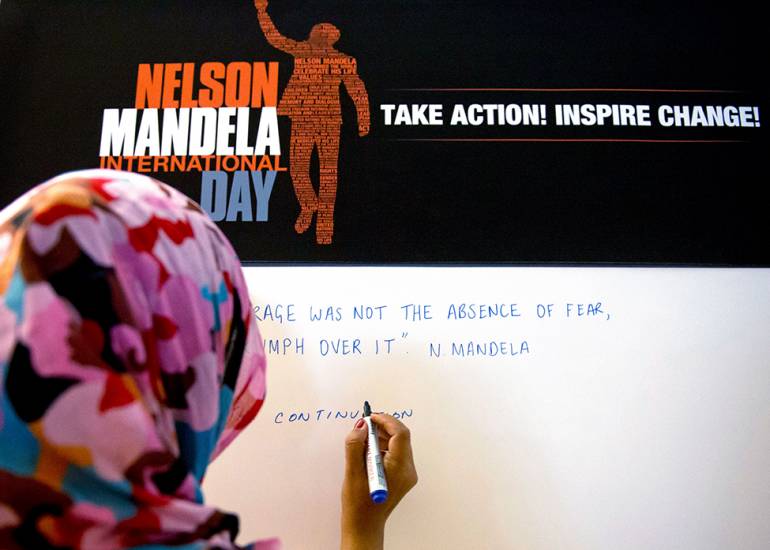 NELSON
MANDELA
INTERNATIONAL
DAY
NELSON MANDELA
CELEBRATE HIS LIFE
VALUES
TAKE ACTION! INSPIRE CHANGE!
RAGE WAS NOT THE ABSENCE OF FEAR,
MPH OVER IT". N. MANDELA